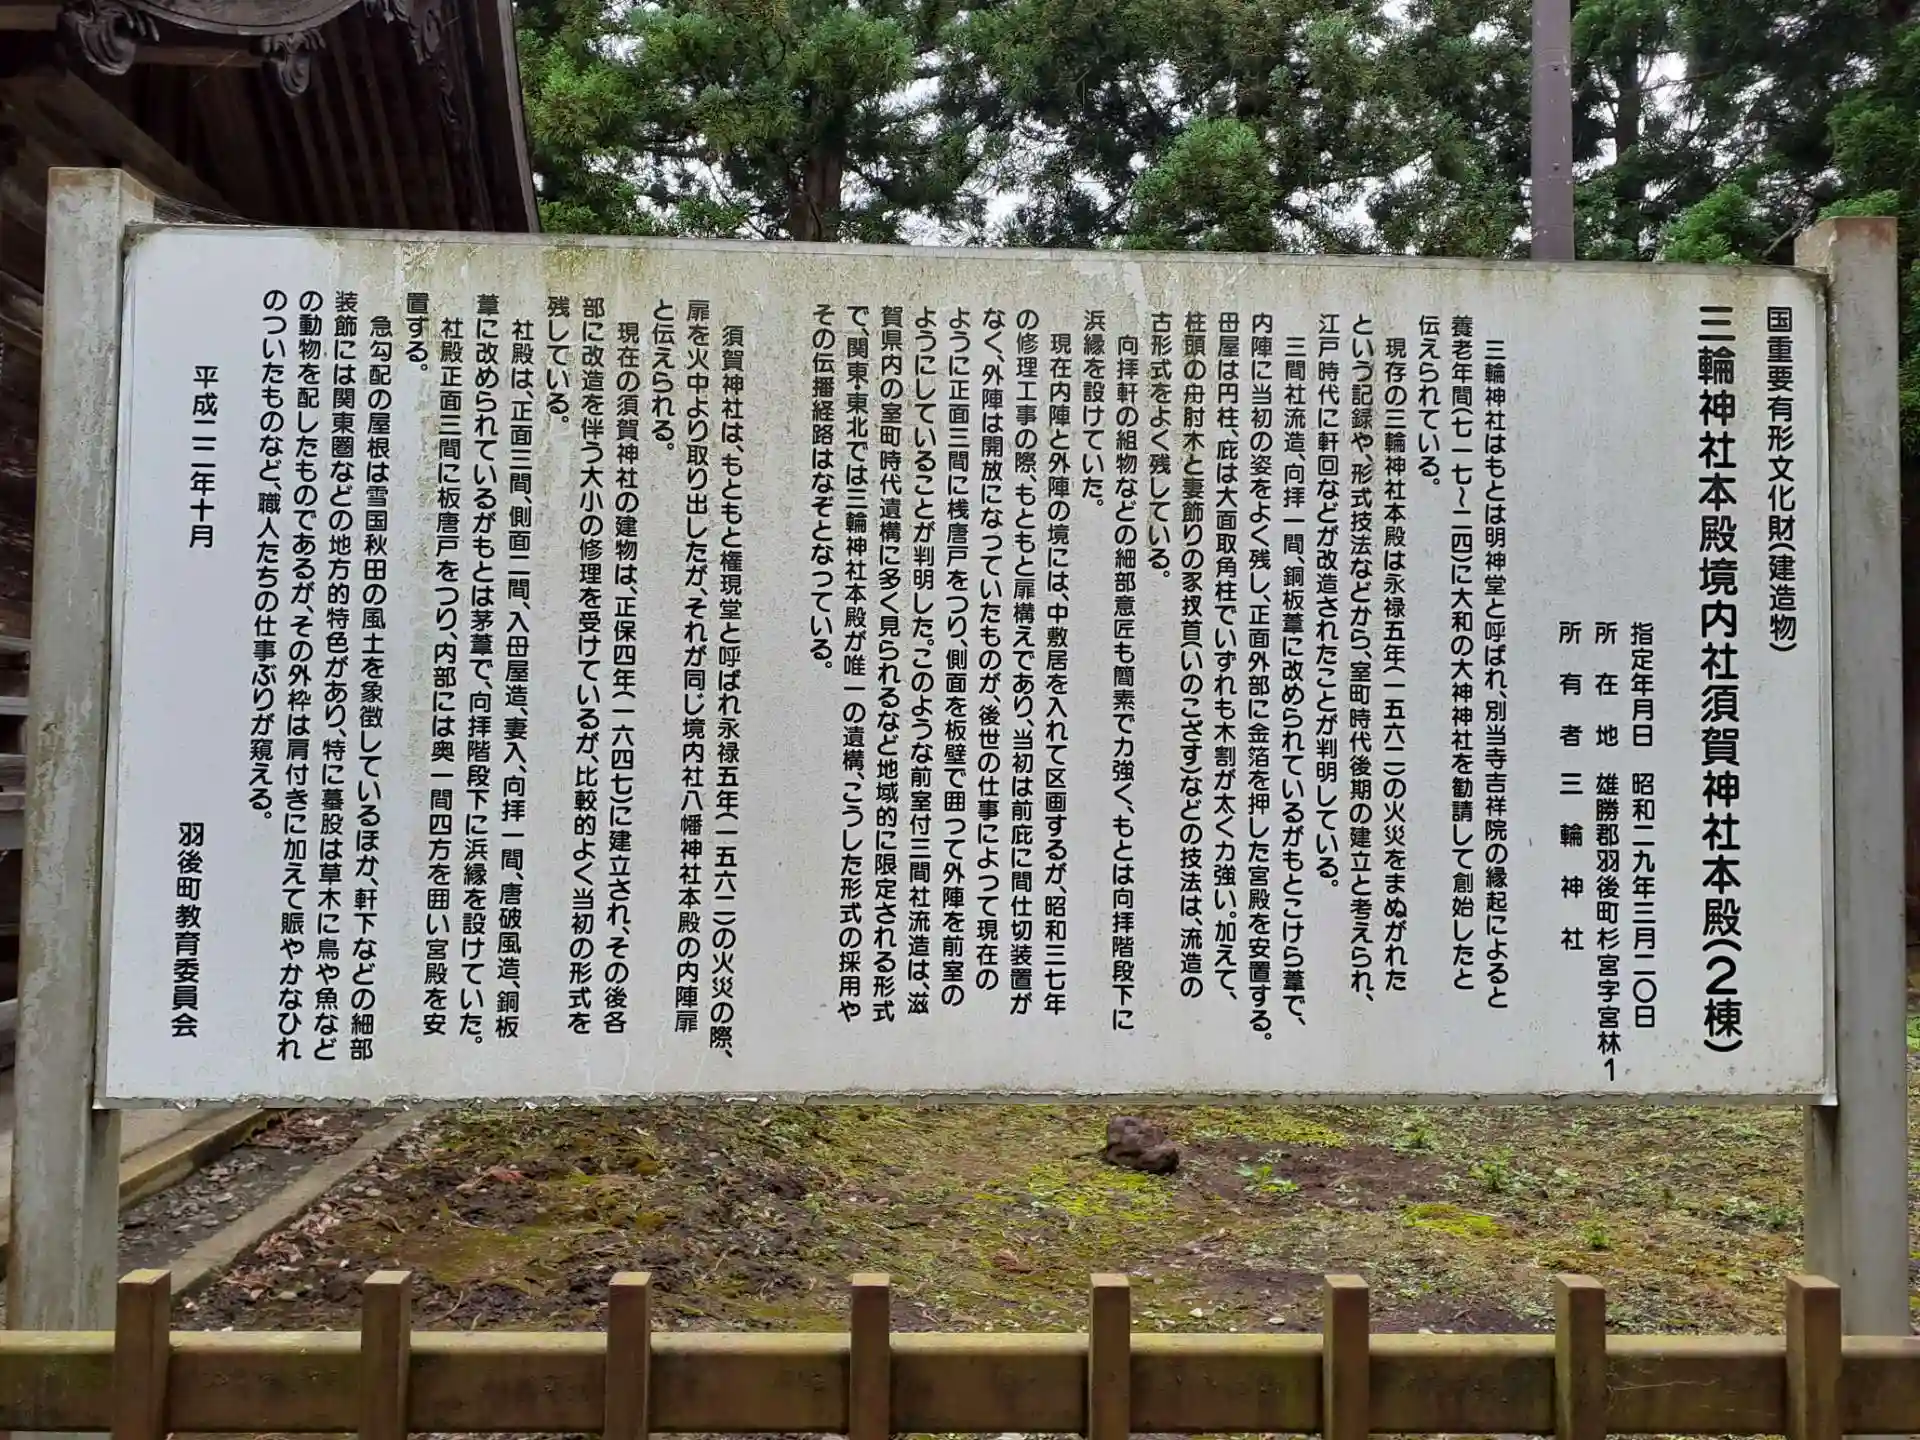 国重要有形文化財(建造物)
三輪神社本殿境内社須賀神社本殿(2棟)
指定年月日 昭和二九年三月二〇日
所在地 雄勝郡羽後町杉宮字宮林1
所有者 三輪神社
三輪神社はもとは明神堂と呼ばれ、別当寺吉祥院の縁起によると
養老年間(七一七〜二四)に大和の大神神社を勧請して創始したと
伝えられている。
現存の三輪神社本殿は永禄五年(一五六二)の火災をまぬがれた
という記録や、形式技法などから、室町時代後期の建立と考えられ、
江戸時代に軒回などが改造されたことが判明している。
三間社流造、向拝一間、銅板葺に改められているがもとこけら葺で、
内陣に当初の姿をよく残し、正面外部に金箔を押した宮殿を安置する。
母屋は円柱、庇は大面取角柱でいずれも木割が太く力強い。加えて、
柱頭の舟肘木と妻飾りの豕扠首(いのこざす)などの技法は、流造の
古形式をよく残している。
向拝軒の組物などの細部意匠も簡素で力強く、もとは向拝階段下に
浜縁を設けていた。
現在内陣と外陣の境には、中敷居を入れて区画するが、昭和三七年
の修理工事の際、もともと扉構えであり、当初は前庇に間仕切装置が
なく、外陣は開放になっていたものが、後世の仕事によって現在の
ように正面三間に桟唐戸をつり、側面を板壁で囲って外陣を前室の
ようにしていることが判明した。このような前室付三間社流造は、滋
賀県内の室町時代遺構に多く見られるなど地域的に限定される形式
で、関東・東北では三輪神社本殿が唯一の遺構、こうした形式の採用や
その伝播経路はなぞとなっている。
須賀神社は、もともと権現堂と呼ばれ永禄五年(一五六二)の火災の際、
扉を火中より取り出したが、それが同じ境内社八幡神社本殿の内陣扉
と伝えられる。
現在の須賀神社の建物は、正保四年(一六四七)に建立され、その後各
部に改造を伴う大小の修理を受けているが、比較的よく当初の形式を
残している。
社殿は、正面三間、側面二間、入母屋造、妻入、向拝一間、唐破風造、銅板
葺に改められているがもとは茅葺で、向拝階段下に浜縁を設けていた。
社殿正面三間に板唐戸をつり、内部には奥一間四方を囲い宮殿を安
置する。
急勾配の屋根は雪国秋田の風土を象徴しているほか、軒下などの細部
装飾には関東圏などの地方的特色があり、特に蟇股は草木に鳥や魚など
の動物を配したものであるが、その外枠は肩付きに加えて賑やかなひれ
のついたものなど、職人たちの仕事ぶりが窺える。
平成二二年十月
羽後町教育委員会